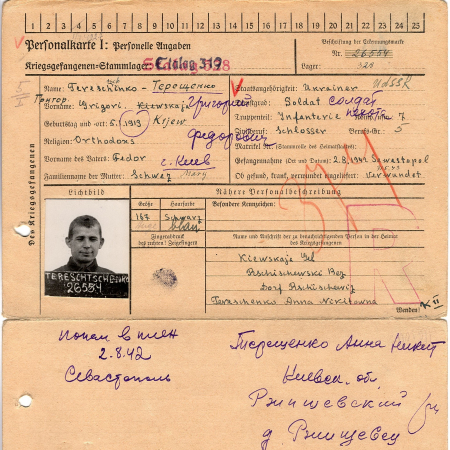 1 2 3 4 5 6 7 8 9 10 11 12 13 14 15 16 17 18 19 20 21 22 23 24 25
Personalkarte I: Personelle Angaben
Beschriftung der Erkennungsmarke
Nr. 26554
Kriegsgefangenen-Stammlager:
Lager: 328
Des Kriegsgefangenen
Name: Tereschtschenko - Терещенко
Staatsangehörigkeit: Ukrainer UdSSR
Vorname: Grigori, Kiewskaja Григорий
Dienstgrad: Soldat солдат
Geburtstag und -ort: 5.1.1913 Kijew
Truppenteil: Infanterie
Religion: Orthodoxs Федорович
Zivilberuf: Schlosser Berufs-Gr.: 5
Vorname des Vaters: Fedor г. Киев
Gefangennahme (Ort und Datum): 2.8.1942 Sewastopol
Familienname der Mutter: Schwez
Ob gesund, krank, verwundet eingeliefert: verwundet
Lichtbild
Nähere Personalbeschreibung
Größe Haarfarbe Besondere Kennzeichen:
167 Schwarz
blau
Fingerabdruck
des rechten! Zeigefinger
Name und Anschrift der zu benachrichtigenden Person in der Heimat
des Kriegsgefangenen
TERESCHTSCHENKO
26554
Kiewskaje
Dorf
Anna Nikitowna
Wenden!
попал в плен
2.8.42
Севастополь
Терещенко Анна Никит
Киевск. об.
Ржищевский
д. Ржищевец